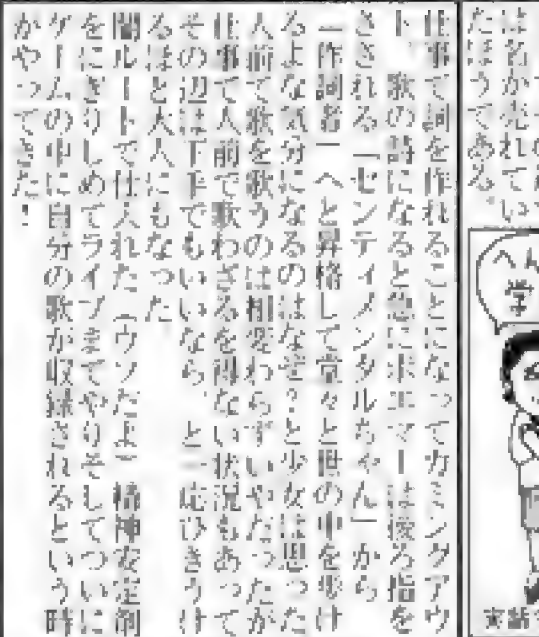 は名が売れてい
たほうである。
へん
学
実話
仕事で詞を作れることになってカミングアウ
ト、歌の詩になると急にポエマーは後ろ指を
さされる「センティメンタルちゃん」から
「作詞者」へと昇格して堂々と世の中を歩け
るよな気分になるのはなぜ?と少女は思った
人前で歌を歌うのは相変わらずいやだったが
仕事で人前で歌わざるを得ない状況もあって
その辺は下手でもいいなら、と一応ひきうけ
るほど大人にもなった
闇ルートで仕入れた(ウソだよ)精神安定剤
をにぎりしめてライブまでやりそしてついに
ゲームの中に自分の歌が収録されるという時
がやってきた!